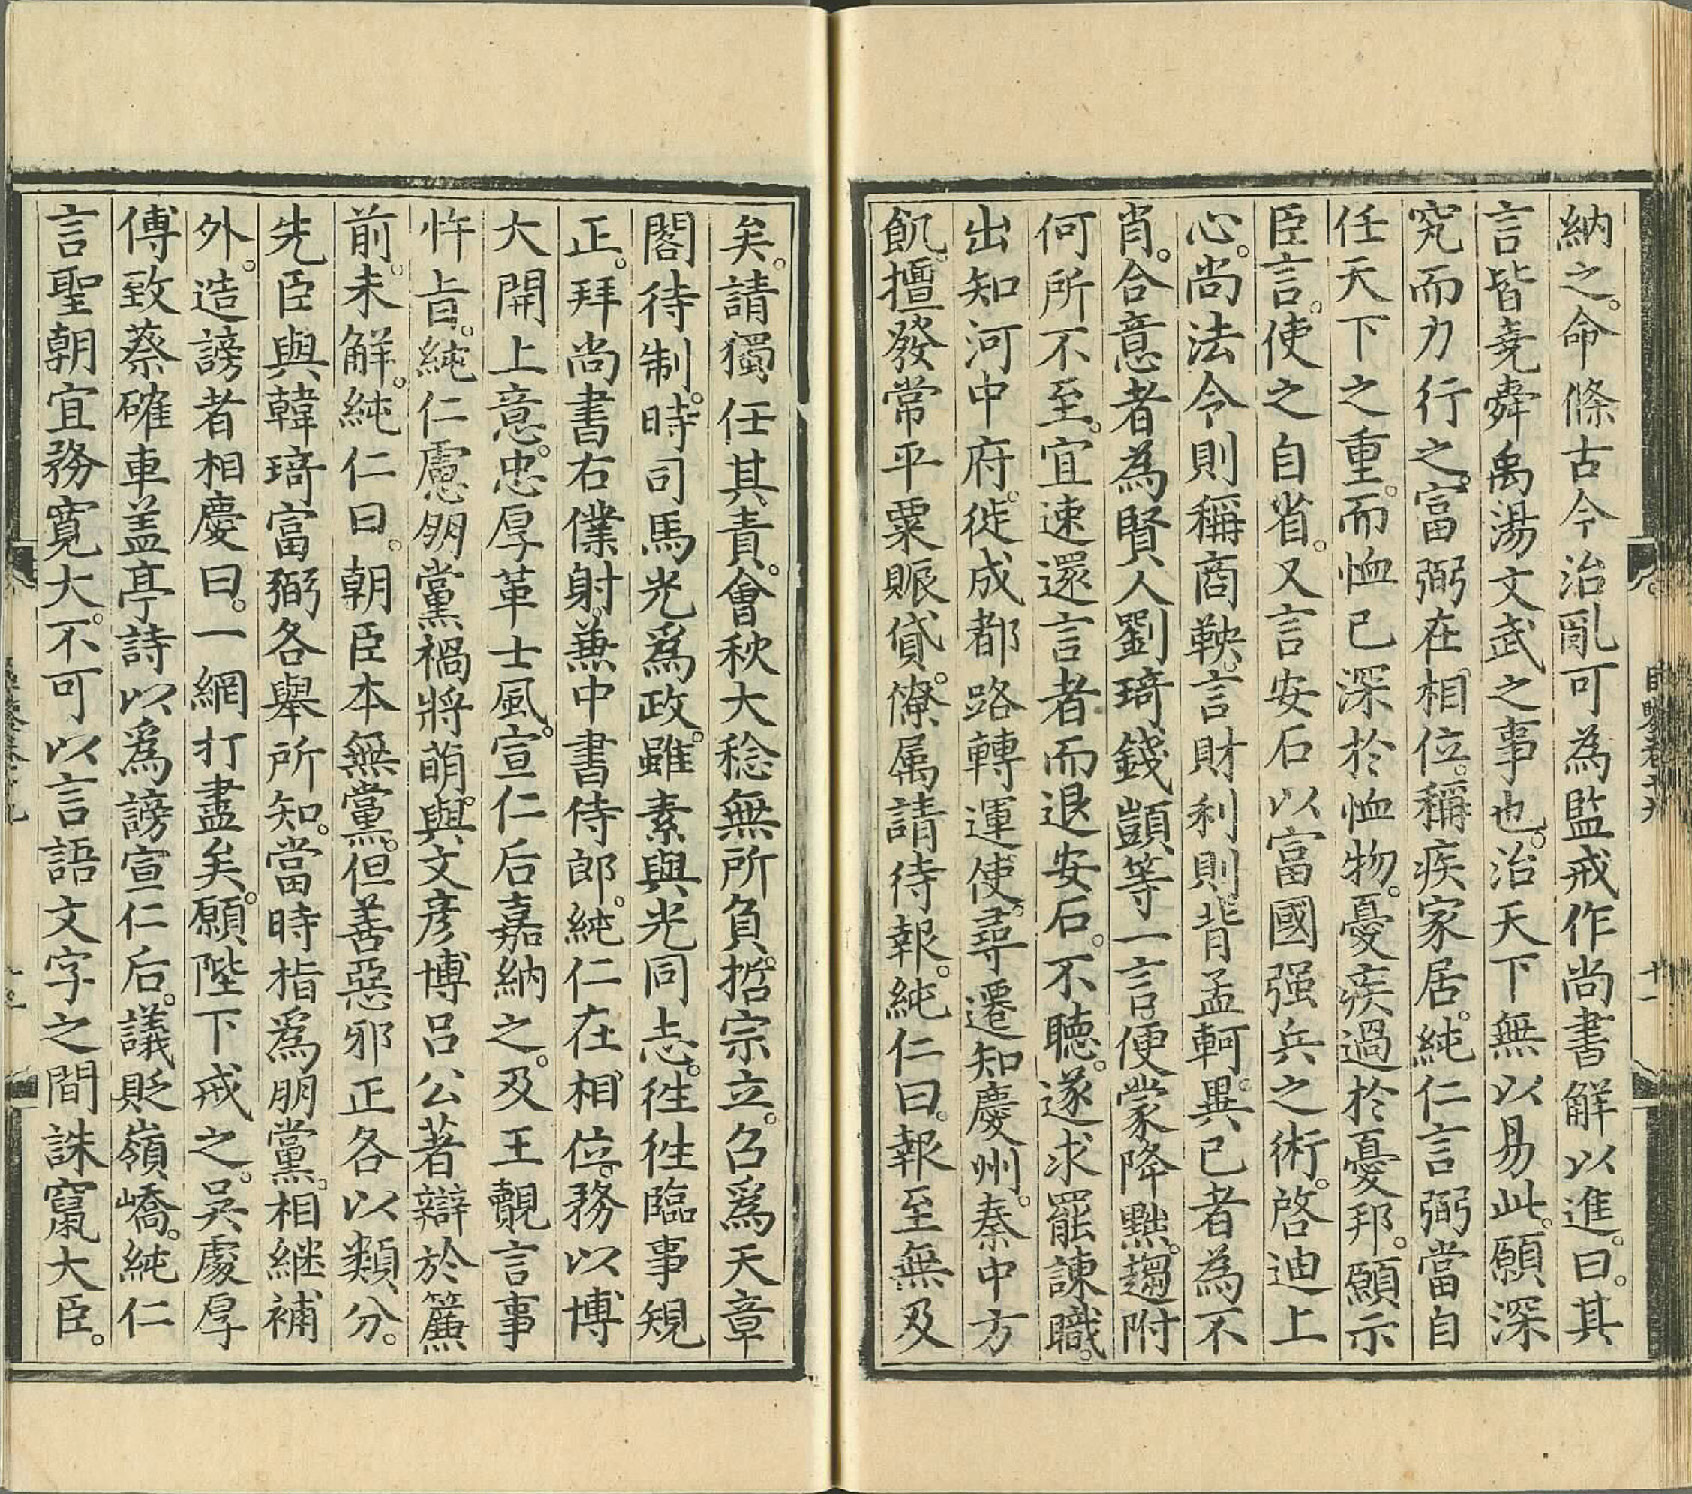 納之。命條古今治亂可為監戒作尚書解以進。曰。其
言皆堯舜禹湯文武之事也。治天下無以易此。願深
究而力行之。富弼在相位。稱疾家居。純仁言弼當自
任天下之重。而恤已深於恤物。憂疾過於憂邦。願示
臣言。使之自省。又言安石以富國强兵之術。啓迪上
心。尚法令則稱商鞅。言財利則背孟軻。異已者為不
肖。合意者為賢人劉琦錢顗等一言便蒙降黜。趨附
何所不至。宜速還言者而退安石。不聽。遂求罷諫職。
出知河中府。徙成都路轉運使。尋遷知慶州。秦中方
飢。擅發常平粟賑貸。僚属請待報。純仁曰。報至無及
矣。請獨任其責。會秋大稔無所負。哲宗立。召爲天章
閣待制。時司馬光爲政。雖素與光同志。徃徃臨事規
正。拜尚書右僕射。兼中書侍郎。純仁在相位。務以博
大開上意。忠厚革士風。宣仁后嘉納之。及王覿言事
忤旨。純仁慮朋黨禍將萌。與文彦博吕公著辯於簾
前。未解。純仁曰。朝臣本無黨。但善惡邪正各以類分。
先臣與韓琦富弼各舉所知。當時指爲朋黨。相継補
外。造謗者相慶曰。一網打盡矣。願陛下戒之。吳處厚
傅致蔡確車盖亭詩以爲謗宣仁后。議貶嶺嶠。純仁
言聖朝宜務寛大。不可以言語文字之間誅竄大臣。
十一